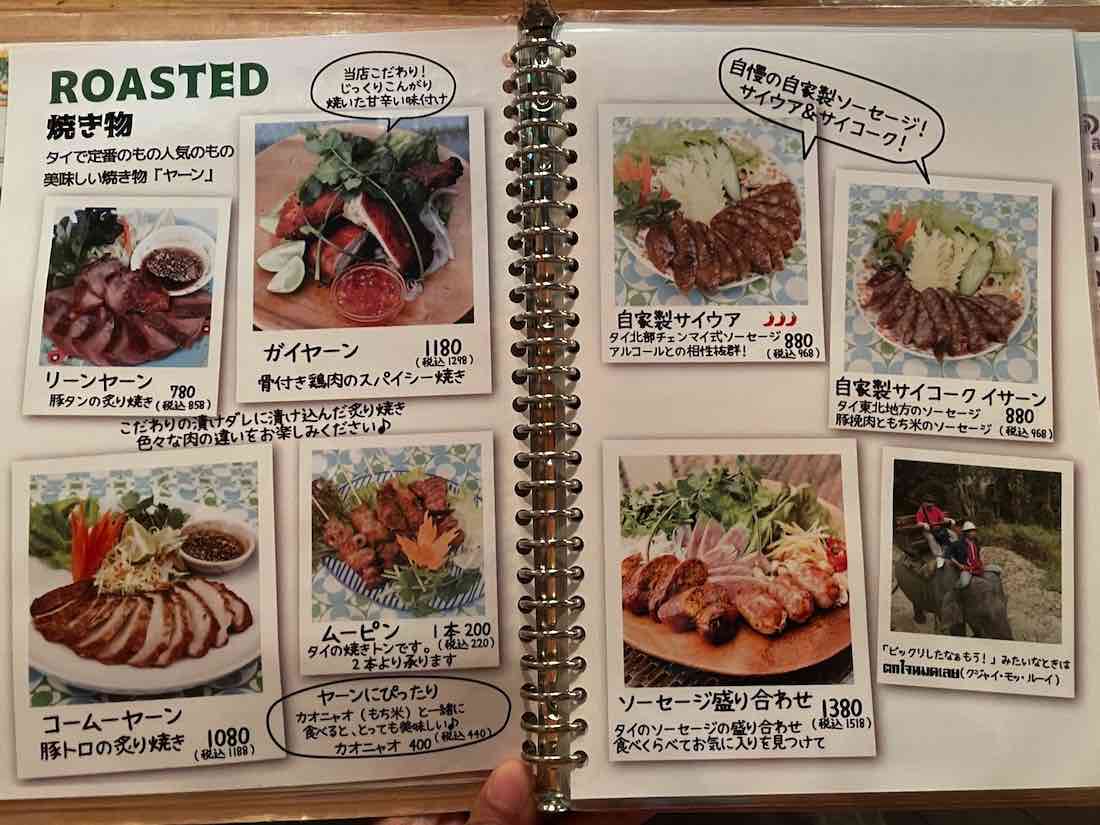 ROASTED
焼き物
タイで定番のもの人気のもの
美味しい焼き物「ヤーン」
当店こだわり!
じっくりこんがり
焼いた甘辛い味付け
リーンヤーン
豚タンの炙り焼き
780
(税込858)
ガイヤーン
1180
(税込1298)
骨付き鶏肉のスパイシー焼き
こだわりの漬けダレに漬け込んだ炙り焼き
色々な肉の違いをお楽しみください♪
コームーヤーン
豚トロの炙り焼き
1080
(税込1188)
ムーピン 1本200
タイの焼きトンです。(税込220)
2本より承ります
ヤーンにぴったり
カオニャオ(もち米)と一緒に
食べると、とっても美味しい♪
カオニャオ 400(税込440)
自慢の自家製ソーセージ!
サイウア&サイコーク!
自家製サイウア
タイ北部チェンマイ式ソーセージ
アルコールとの相性抜群!
880
(税込968)
自家製サイコーク イサーン
タイ東北地方のソーセージ
豚挽肉ともち米のソーセージ
880
(税込968)
ソーセージ盛り合わせ
1380
(税込1518)
タイのソーセージの盛り合わせ
食べくらべてお気に入りを見つけて
「ビックリしたなぁもう!」みたいなときは
ตกใจหมดเลย(クジャイ・モッ・ルーイ)